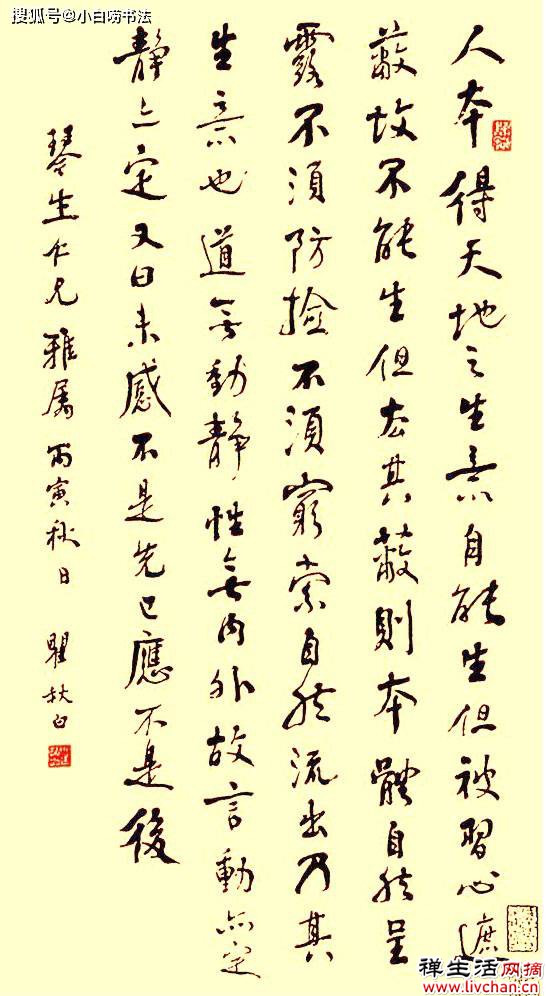 搜狐号@小白唠书法
人本得天地之生意自能生但被習心遮
蔽故不能生但去其蔽則本體自然呈
露不須防撿不須窮索自然流出乃其
生意也道無動靜性無內外故言動亦定
靜亦定又曰未感不是先已應不是後
琴生仁兄雅屬丙寅秋日 瞿秋白
禅生活网摘
www.livchan.cn